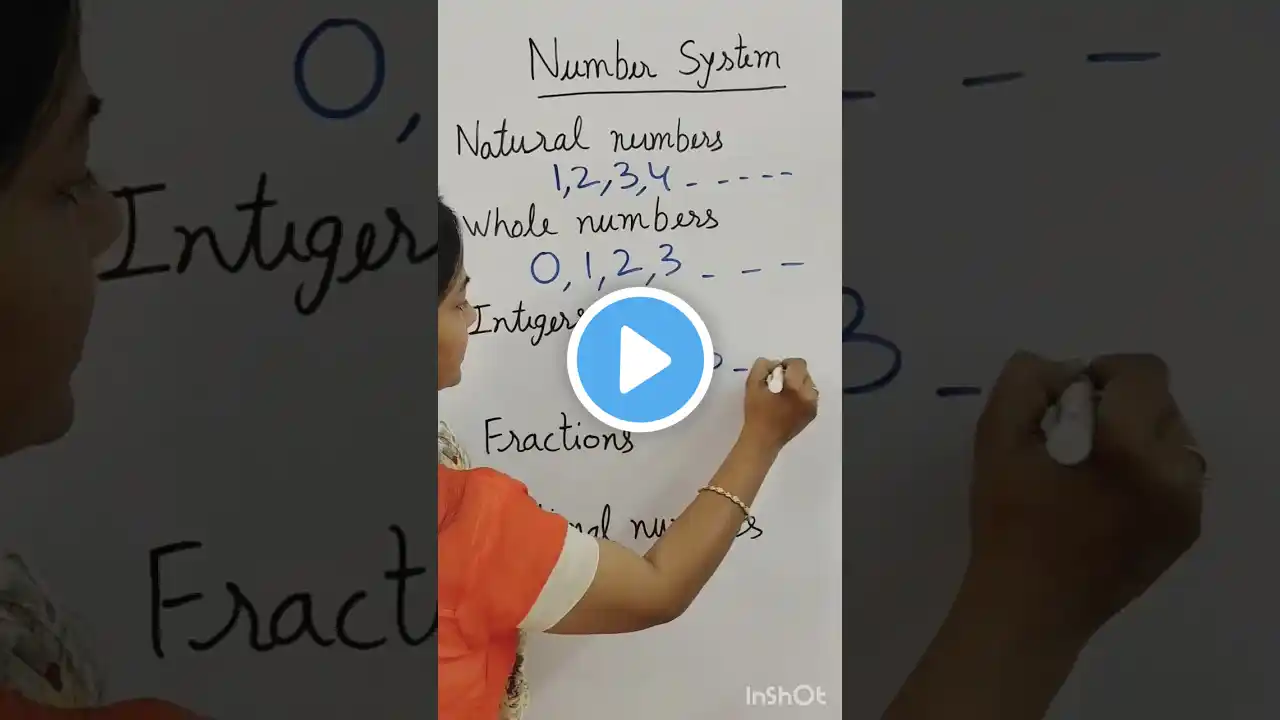 Number System
Natural numbers
1,2,3,4 - - - - -
Whole numbers
0,1,2,3 - - -
Intigers
Fractions
InShOt